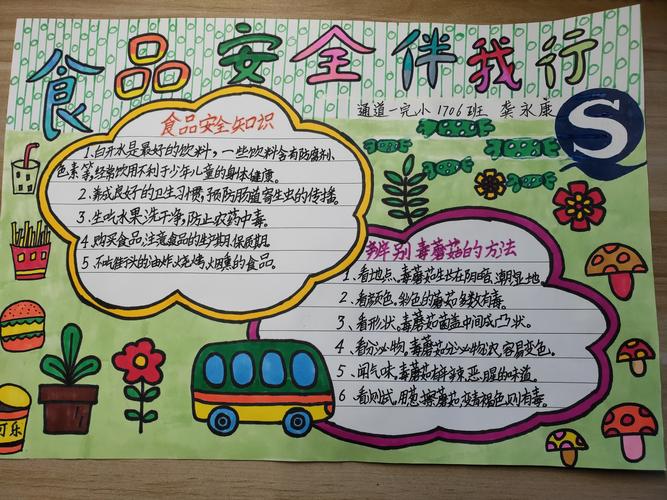 食品安全伴我行
通道一完小1706班 龚永康
S
食品安全知识
1、白开水是最好的饮料,一些饮料含有防腐剂、
色素等,经常饮用不利于少年儿童的身体健康。
2、养成良好的卫生习惯,预防肠道寄生虫的传播。
3、生吃水果洗干净,防止农药中毒。
4、购买食品,注意食品的生产日期、保质期。
5、不吃街头的油炸、烧烤、烟熏的食品。
辨别毒蘑菇的方法
1、看地点,毒蘑菇生长在阴暗、潮湿地
2、看颜色,彩色的蘑菇多数有毒。
3、看形状,毒蘑菇菌盖中间成凸状。
4、看分泌物,毒蘑菇分泌物浓,容易变色。
5、闻气味,毒蘑菇有辛辣、恶、腥的味道。
6 看测试,用葱擦蘑菇,变青褐色则有毒。
可乐